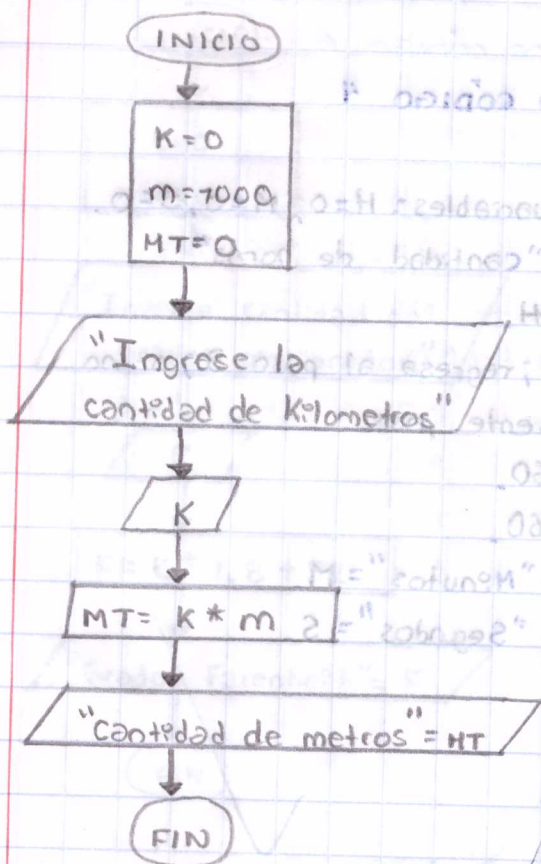 INICIO
K=0
m=1000
MT=0
"Ingrese la
cantidad de kilometros"
K
MT= K * m
"Cantidad de metros" = MT
FIN